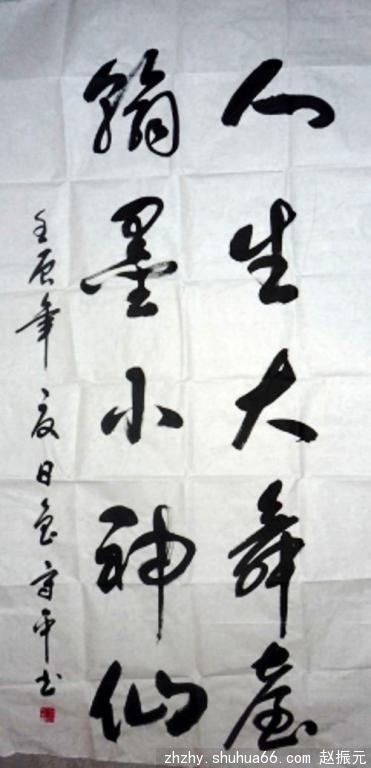 人生大舞臺
翰墨小神仙
壬辰年夏日守平书
zhzhy.shuhua66.com 赵振元